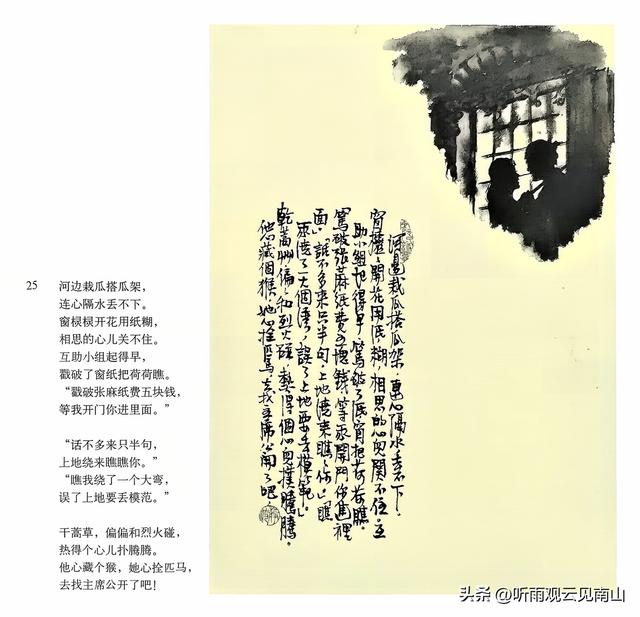 25
河边栽瓜搭瓜架，
连心隔水丢不下。
窗棂棂开花用纸糊，
相思的心儿关不住。
互助小组起得早，
戳破了窗纸把荷荷瞧。
“戳破张麻纸费五块钱，
等我开门你进里面。”
“话不多来只半句，
上地绕来瞧瞧你。”
“瞧我绕了一个大弯，
误了上地要丢模范。”
干蒿草，偏偏和烈火碰，
热得个心儿扑腾腾。
他心藏个猴，她心拴匹马，
去找主席公开了吧！
河邊栽瓜搭瓜架，連心隔水丢不下。
開花用纸糊，相思的心兒關不住。互
助小組起得早，戳破了纸窗把荷荷瞧。
戳破張蔴纸费五塊錢，等我開門你進裡
面。”“話不多来只半句，上地湾来瞧之你。”“瞧
我湾了一大個湾，誤了上地要丢模範。”
乾蒿艸，偏之和烈火碰，熱得個心兒撲騰騰。
他心藏個猴，她心拴匹馬，去找主席公開了吧。
头条 @听雨观云见南山